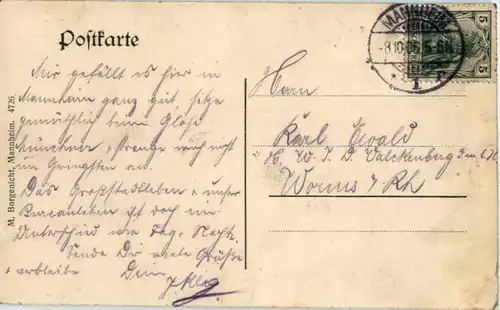 Postkarte
MANNHEIM
-8.10.05. 5-6N
* 1 *
5
5
M. Borgenicht, Mannheim. 4726
Mir gefällt es hier in
Mannheim ganz gut, sitze
gemüthlich beim Glase
Münchner + strenge mich nicht
im Gringsten an.
Das Großstadtleben + unser
Bureauleben ist doch ein
Unterschied wie Tag + Nacht.
Sende Dir viele Grüße
+ verbleibe Dein
Herrn
Karl Ewald
W. J. D. Valckenberg G.m.b.H.
Worms a/Rh